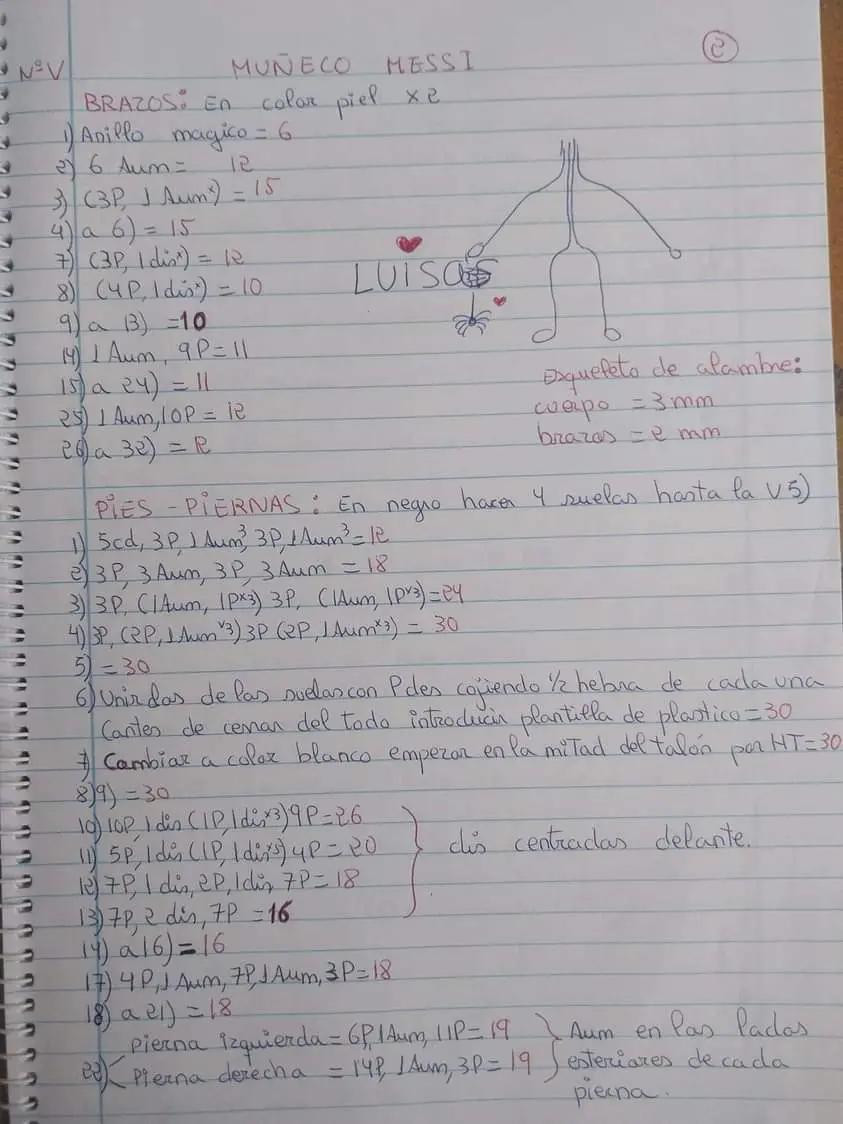 2
NºV MUÑECO MESSI
BRAZOS: En color piel x2
1) Anillo magico = 6
2) 6 Aum = 12
3) (3P, 1 Aumˣ) = 15
4) a 6) = 15
7) (3P, 1 disˣ) = 12
8) (4P, 1 disˣ) = 10
9) a 13) = 10
14) 1 Aum, 9P = 11
15) a 24) = 11
25) 1 Aum, 10P = 12
26) a 32) = 12
LUISA
Esquefeto de alambre:
cuerpo = 3 mm
brazos = 2 mm
PIES - PIERNAS: En negro hacer 4 suelas hasta la V5)
1) 5cd, 3P, 1 Aum³, 3P, 1 Aum³ = 12
2) 3P, 3 Aum, 3P, 3 Aum = 18
3) 3P, (1 Aum, 1Pˣ³) 3P, (1 Aum, 1Pˣ³) = 24
4) 3P, (2P, 1 Aumˣ³) 3P (2P, 1 Aumˣ³) = 30
5) = 30
6) Unir dos de las suelas con Pdes cojiendo ½ hebra de cada una
(antes de cerrar del todo introducir plantilla de plastico = 30
7) Cambiar a color blanco empezar en la mitad del talón por HT = 30
8) 9) = 30
10) 10P, 1 dis (1P, 1 disˣ³) 9P = 26
11) 5P, 1 dis (1P, 1 disˣ⁵) 4P = 20
12) 7P, 1 dis, 2P, 1 dis, 7P = 18
13) 7P, 2 dis, 7P = 16
} dis centradas delante.
14) a 16) = 16
17) 4P, 1 Aum, 7P, 1 Aum, 3P = 18
18) a 21) = 18
22) < pierna izquierda = 6P, 1 Aum, 11P = 19
Pierna derecha = 14P, 1 Aum, 3P = 19
} Aum en los lados
esteriores de cada
pierna.